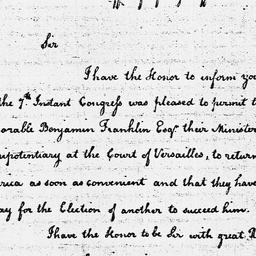 Sir
I have the Honor to inform you
the 7th Instant Congress was pleased to permit t
orable Benjamin Franklin Esqr. their Minister
ipotentiary at the Court of Versailles, to return
rica as soon as convenient and that they have
ay for the Election of another to succeed him.
I have the Honor to be Sir with great R